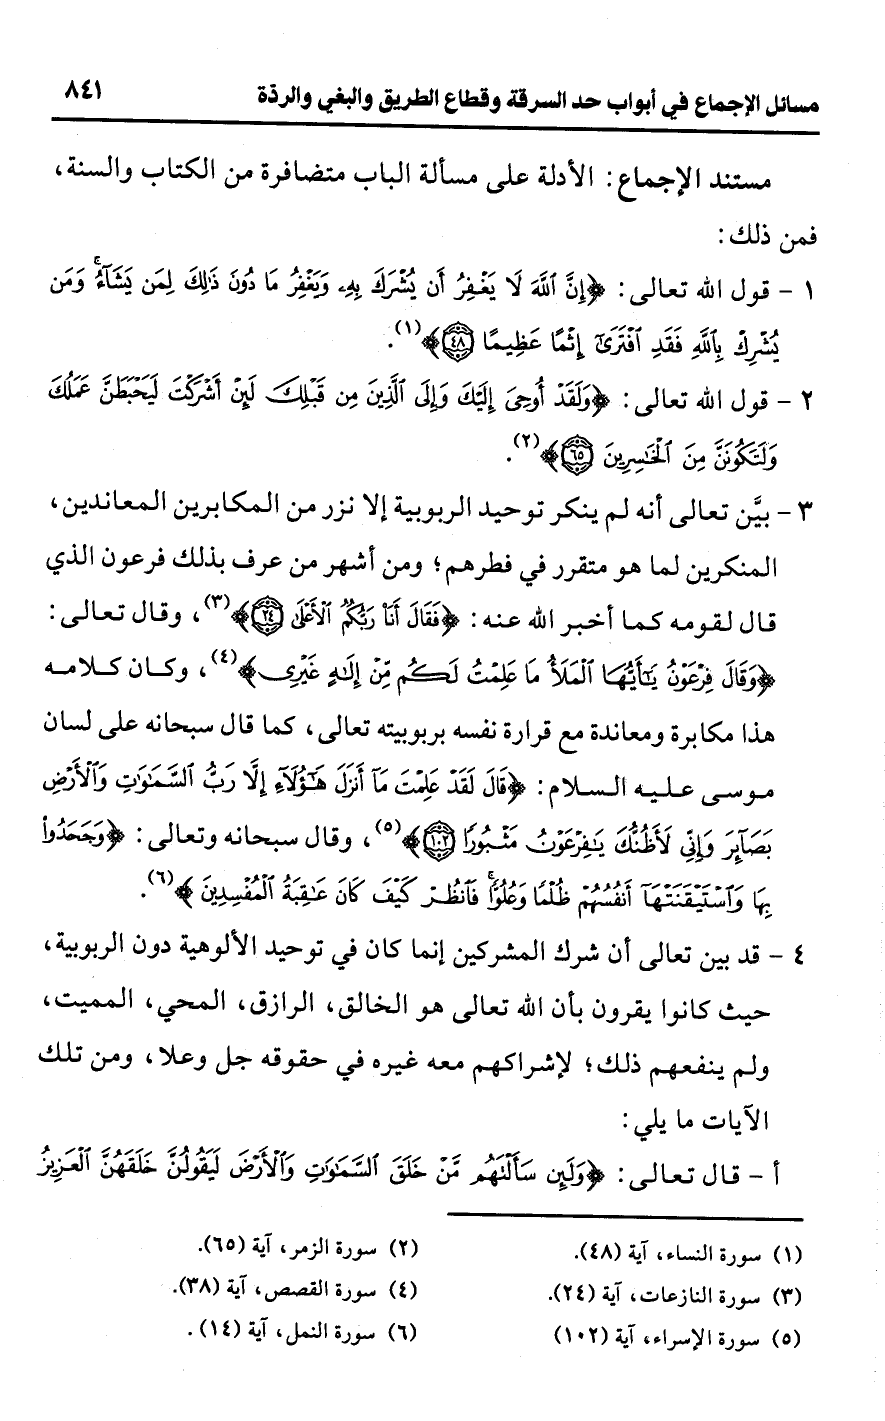 مسائل الإجماع في أبواب حد السرقة وقطاع الطريق والبغي والردّة ٨٤١
مستند الإجماع: الأدلة على مسألة الباب متضافرة من الكتاب والسنة،
فمن ذلك:
١ - قول الله تعالى: ﴿إِنَّ ٱللَّهَ لَا يَغْفِرُ أَن يُشْرَكَ بِهِۦ وَيَغْفِرُ مَا دُونَ ذَٰلِكَ لِمَن يَشَآءُ ۚ وَمَن
يُشْرِكْ بِٱللَّهِ فَقَدِ ٱفْتَرَىٰٓ إِثْمًا عَظِيمًا ٤٨﴾(١).
٢ - قول الله تعالى: ﴿وَلَقَدْ أُوحِىَ إِلَيْكَ وَإِلَى ٱلَّذِينَ مِن قَبْلِكَ لَئِنْ أَشْرَكْتَ لَيَحْبَطَنَّ عَمَلُكَ
وَلَتَكُونَنَّ مِنَ ٱلْخَٰسِرِينَ ٦٥﴾(٢).
٣ - بيَّن تعالى أنه لم ينكر توحيد الربوبية إلا نزر من المكابرين المعاندين،
المنكرين لما هو متقرر في فطرهم؛ ومن أشهر من عرف بذلك فرعون الذي
قال لقومه كما أخبر الله عنه: ﴿فَقَالَ أَنَا۠ رَبُّكُمُ ٱلْأَعْلَىٰ ٢٤﴾(٣)، وقال تعالى:
﴿وَقَالَ فِرْعَوْنُ يَٰٓأَيُّهَا ٱلْمَلَأُ مَا عَلِمْتُ لَكُم مِّنْ إِلَٰهٍ غَيْرِى﴾(٤)، وكان كلامه
هذا مكابرة ومعاندة مع قرارة نفسه بربوبيته تعالى، كما قال سبحانه على لسان
موسى عليه السلام: ﴿قَالَ لَقَدْ عَلِمْتَ مَآ أَنزَلَ هَٰٓؤُلَآءِ إِلَّا رَبُّ ٱلسَّمَٰوَٰتِ وَٱلْأَرْضِ
بَصَآئِرَ وَإِنِّى لَأَظُنُّكَ يَٰفِرْعَوْنُ مَثْبُورًا ١٠٢﴾(٥)، وقال سبحانه وتعالى: ﴿وَجَحَدُوا۟
بِهَا وَٱسْتَيْقَنَتْهَآ أَنفُسُهُمْ ظُلْمًا وَعُلُوًّا ۚ فَٱنظُرْ كَيْفَ كَانَ عَٰقِبَةُ ٱلْمُفْسِدِينَ﴾(٦).
٤ - قد بين تعالى أن شرك المشركين إنما كان في توحيد الألوهية دون الربوبية،
حيث كانوا يقرون بأن الله تعالى هو الخالق، الرازق، المحي، المميت،
ولم ينفعهم ذلك؛ لإشراكهم معه غيره في حقوقه جل وعلا، ومن تلك
الآيات ما يلي:
أ - قال تعالى: ﴿وَلَئِن سَأَلْتَهُم مَّنْ خَلَقَ ٱلسَّمَٰوَٰتِ وَٱلْأَرْضَ لَيَقُولُنَّ خَلَقَهُنَّ ٱلْعَزِيزُ
(١) سورة النساء، آية (٤٨). (٢) سورة الزمر، آية (٦٥).
(٣) سورة النازعات، آية (٢٤). (٤) سورة القصص، آية (٣٨).
(٥) سورة الإسراء، آية (١٠٢) (٦) سورة النمل، آية (١٤).